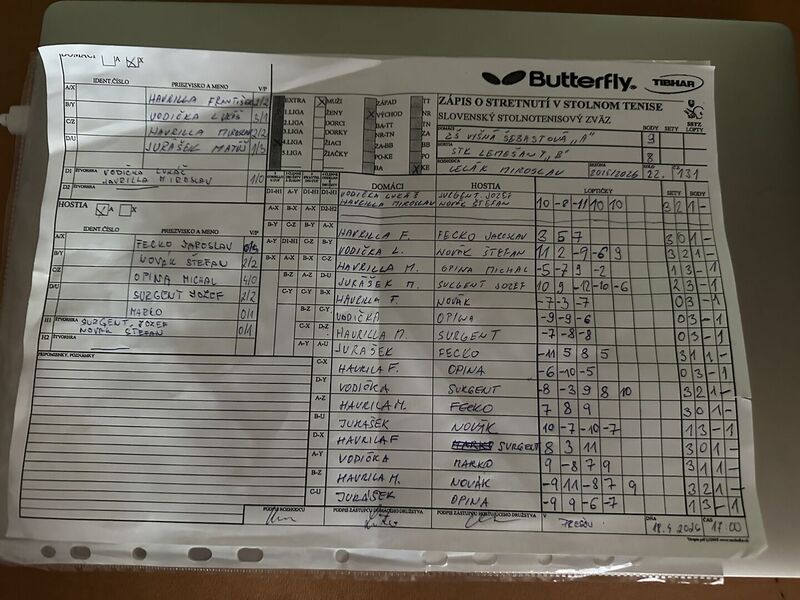 DOMÁCI A X
Butterfly TIBHAR
IDENT.ČÍSLO PRIEZVISKO A MENO V/P
A/X HAVRILLA FRANTIŠEK 2/2
B/Y VODIČKA LUKÁŠ 3/1
C/Z HAVRILLA MIROSLAV 2/2
D/U JURAŠEK MATÚŠ 1/3
D1 ŠTVORHRA VODIČKA LUKÁČ
D2 HAVRILLA MIROSLAV 1/0
EXTRA X MUŽI ZÁPAD TT
1.LIGA ŽENY X VÝCHOD NR
2.LIGA DORKY BA-TT ZA
3.LIGA DORCI NR-TN BB
X 4.LIGA ŽIACI ZA-BB PO
5.LIGA ŽIAČKY PO-KE
BA X KE
ZÁPIS O STRETNUTÍ V STOLNOM TENISE
SLOVENSKÝ STOLNOTENISOVÝ ZVÄZ
SSTZ
DOMÁCI ZŠ VYŠNÁ ŠEBASTOVÁ "A" BODY 9 SETY LOPTY
HOSTIA STK LEMEŠANY "B" 8
ROZHODCA LELÁK MIROSLAV SEZÓNA 2015/2026 KOLO 22. Č.Z. 131
HOSTIA X
IDENT.ČÍSLO PRIEZVISKO A MENO V/P
A/X FECKO JAROSLAV 0/3
B/Y NOVÁK ŠTEFAN 2/2
C/Z OPINA MICHAL 4/0
D/U SURGENT JOZEF 2/2
MARKO 0/1
H1 ŠTVORHRA SURGENT JOZEF
H2 NOVÁK ŠTEFAN 0/1
PRIPOMIENKY, POZNÁMKY
DOMÁCI HOSTIA LOPTIČKY SETY BODY
VODIČKA LUKÁŠ SURGENT JOZEF
HAVRILLA MIROSLAV NOVÁK ŠTEFAN 10 -8 -11 10 10 3 2 1 -
HAVRILLA F. FECKO JAROSLAV 3 5 7 3 0 1 -
VODIČKA L. NOVÁK ŠTEFAN 11 2 -9 -6 9 3 2 1 -
HAVRILLA M. OPINA MICHAL -5 -7 9 -2 1 3 - 1
JURÁŠEK M. SURGENT JOZEF 10 9 -12 -10 -6 2 3 - 1
HAVRILLA F. NOVÁK -7 -3 -7 0 3 - 1
VODIČKA OPINA -9 -9 -6 0 3 - 1
HAVRILLA M. SURGENT -7 -8 -8 0 3 - 1
JURAŠEK FECKO -11 5 8 5 3 1 1 -
HAVRILA F. OPINA -6 -10 -5 0 3 - 1
VODIČKA SURGENT -8 -3 9 8 10 3 2 1 -
HAVRILA M. FECKO 7 8 9 3 0 1 -
JURAŠEK NOVÁK 10 -7 -10 -7 1 3 - 1
HAVRILA F SURGENT 8 3 11 3 0 1 -
VODIČKA MARKO 9 -8 7 9 3 1 1 -
HAVRILA M. NOVÁK -9 11 -8 7 9 3 2 1 -
JURÁŠEK OPINA -9 9 -6 -7 1 3 - 1
PODPIS ROZHODCU PODPIS ZÁSTUPCU DOMÁCEHO DRUŽSTVA PODPIS ZÁSTUPCU HOSŤUJÚCEHO DRUŽSTVA V PREŠOV DŇA 18.4 2026 ČAS 17:00